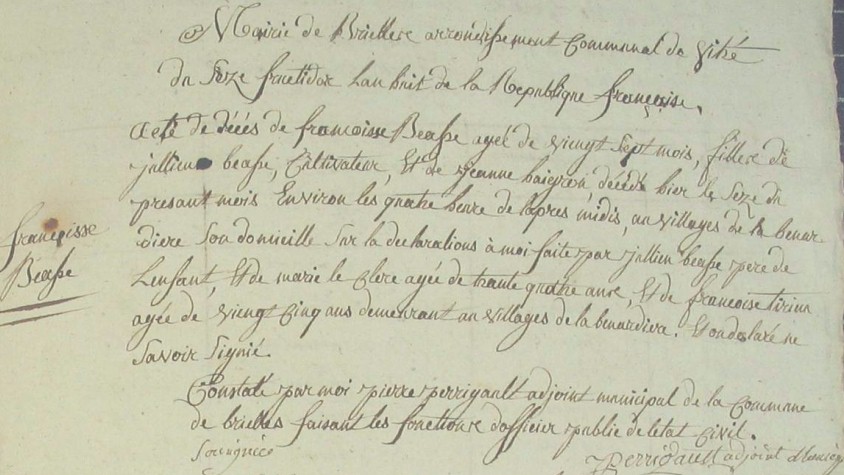 Mairie de Brielles arrondissement Communal de vitré
du Seze fructidor Lan huit de la Republique françoise.
acte de décés de francoisse Beasse agée de viengt Sept mois, fillere de
jullien beasse, Cultivateur, Et de jeanne baigron, décédé hier le Seze du
presant mois Environ les quatre heure de lapres midis, au villages de la benar
diere Son domicille Sur la declarations à moi faite par jullien beasse pere de
Lenfant, Et de marie le clere agée de trante quatre ans, Et de francoise tirion
agée de viengt Cinq ans demeurant au villages de la benardiere. Et on declaré ne
Savoir Signié.
françoisse
Beasse
Constaté par moi pierre perrigault adjoint municipal de la Commune
de brielles faisant les fonctions dofficier public de letat Civil.
Sousignée
Perrigault adjoint